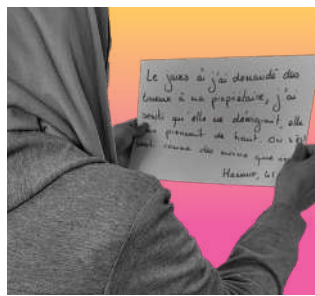 Le jour où j'ai demandé des
travaux à ma propriétaire, j'ai
senti qu'elle me dénigrait, elle
prenant de haut. On s'est
senti comme des moins que